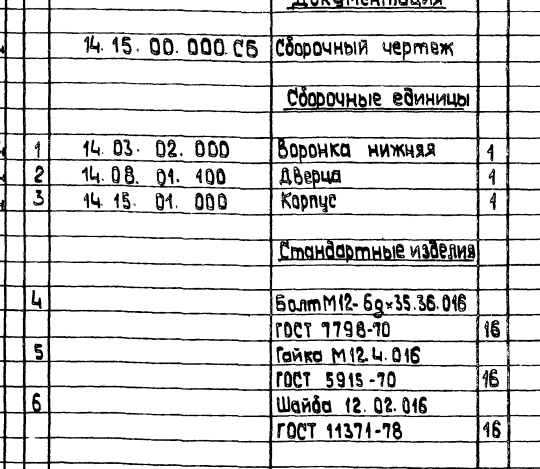 Документация
14.15.00.000.СБ Сборочный чертеж
Сборочные единицы
1 14.03.02.000 Воронка нижняя 1
2 14.08.01.100 Дверца 1
3 14.15.01.000 Корпус 1
Стандартные изделия
4 Болт М12-6g×35.36.016
ГОСТ 7798-70 16
5 Гайка М12.4.016
ГОСТ 5915-70 16
6 Шайба 12.02.016
ГОСТ 11371-78 16